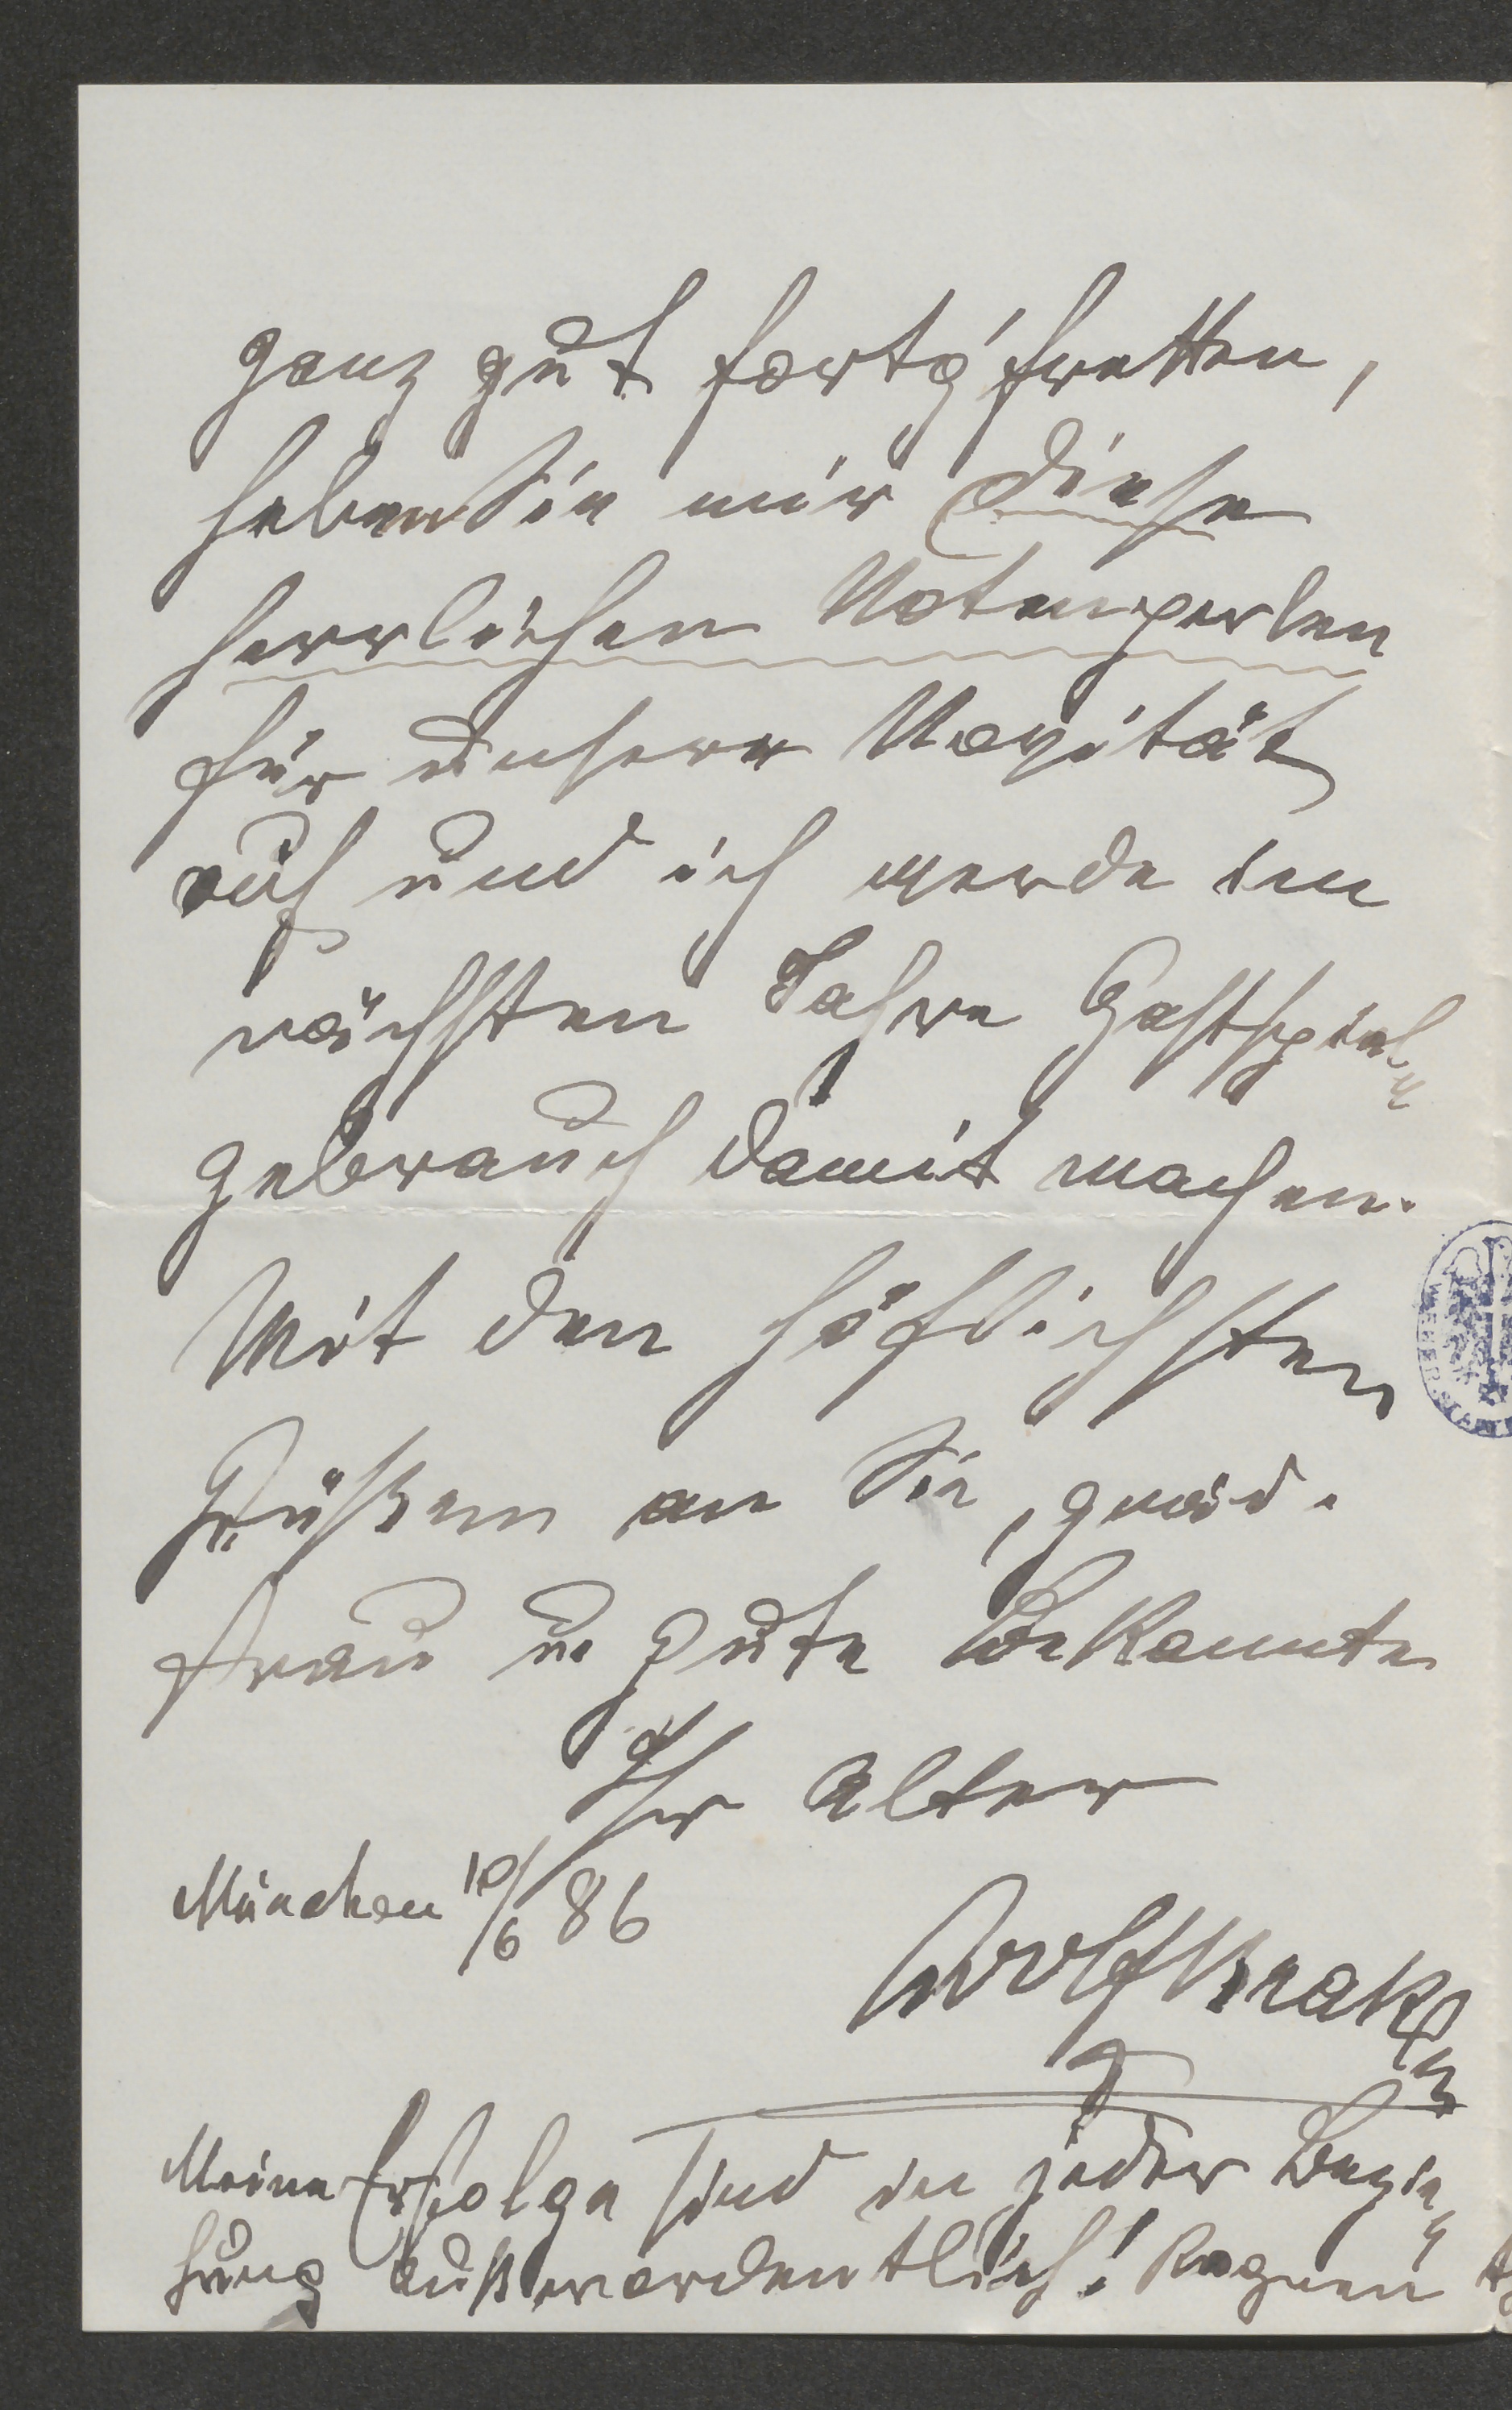 ganz gut fortg'fretten,
heben Sie mir diese
herrlichen Notenperlen
für unsere Novität
auf und ich werde im
nächsten Jahre Gastspiel-
gebrauch damit machen.
Mit den höflichsten
Grüßen an Sie, gnäd.
Frau u. gute Bekannte
Ihr alter
München 10/6 86
Meine Erfolge sind in jeder Bezie-
hung außerordentlich! Regnen